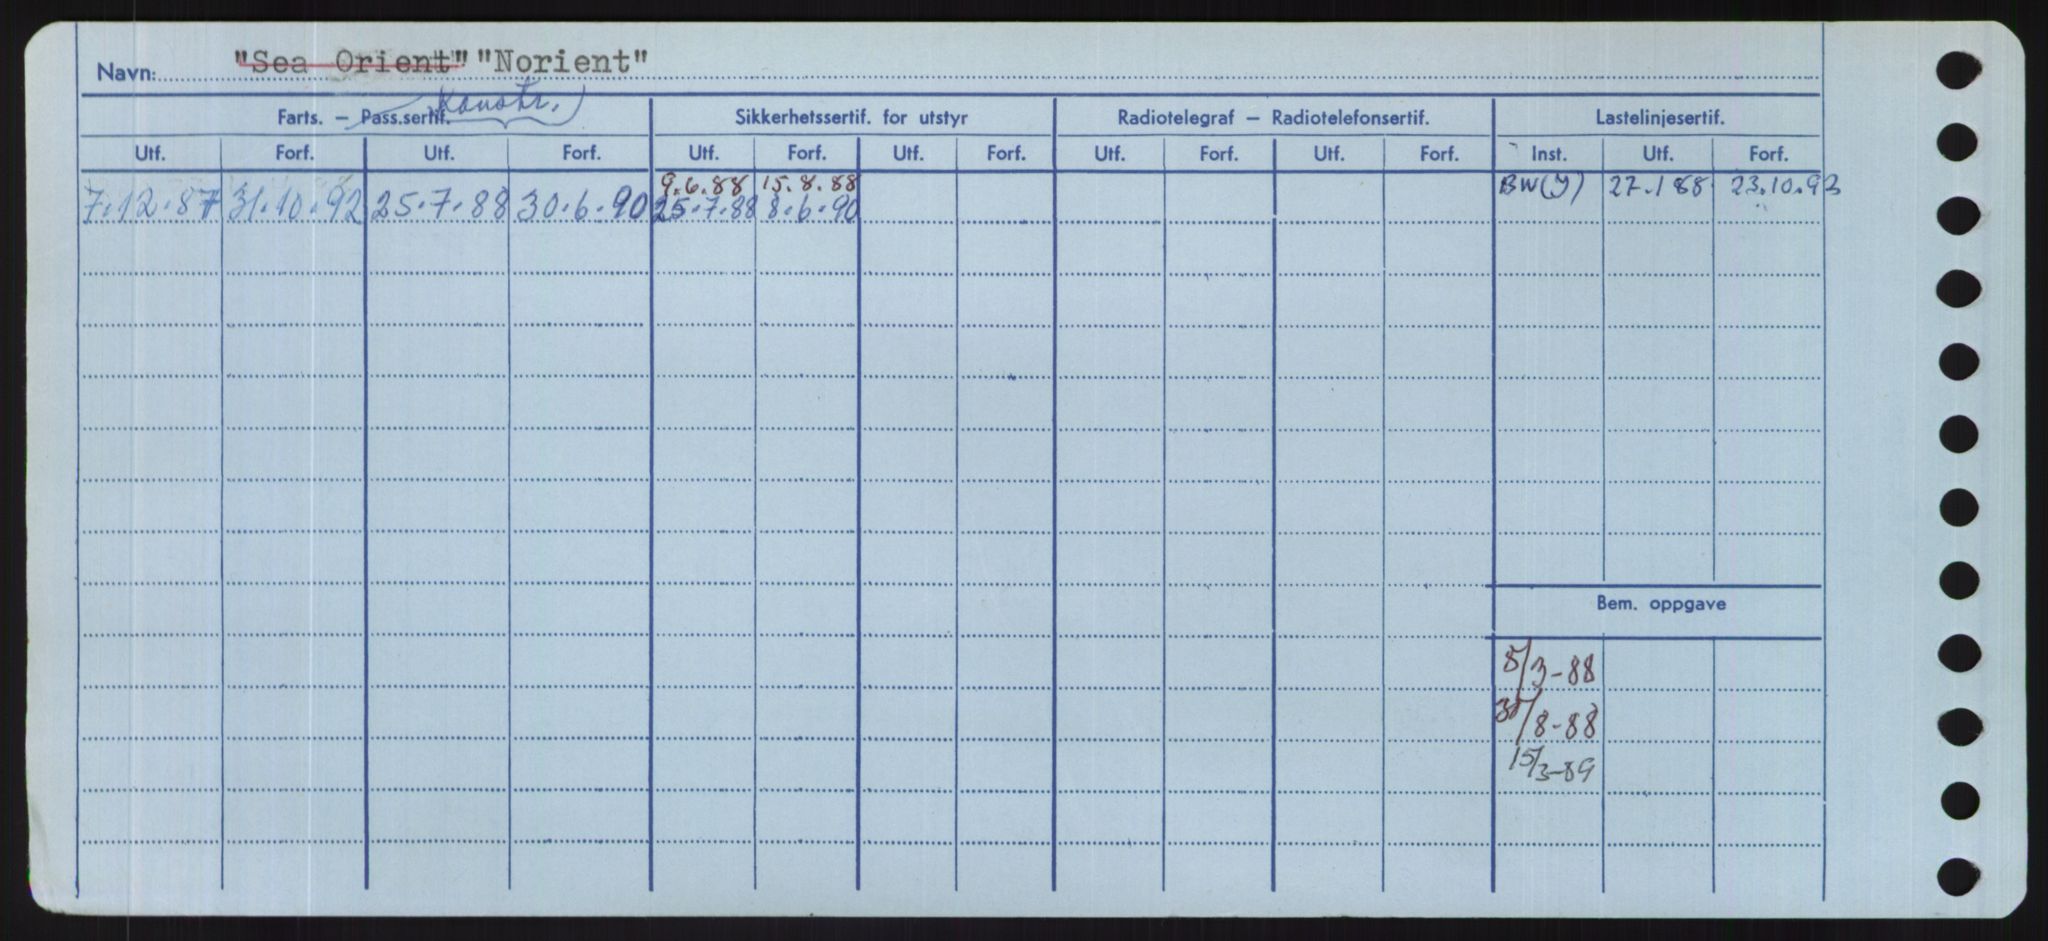 Navn: "Sea Orient" "Norient"
Konstr.
Farts. — Pass.sertif. Sikkerhetssertif. for utstyr Radiotelegraf — Radiotelefonsertif. Lastelinjesertif.
Utf. Forf. Utf. Forf. Utf. Forf. Utf. Forf. Utf. Forf. Utf. Forf. Inst. Utf. Forf.
9.6.88 15.8.88 BW(Y) 27.1 88 23.10.93
7.12.87 31.10.92 25.7.88 30.6.90 25.7.88 8.6.90
Bem. oppgave
/3-88
/8-88
15/3-89